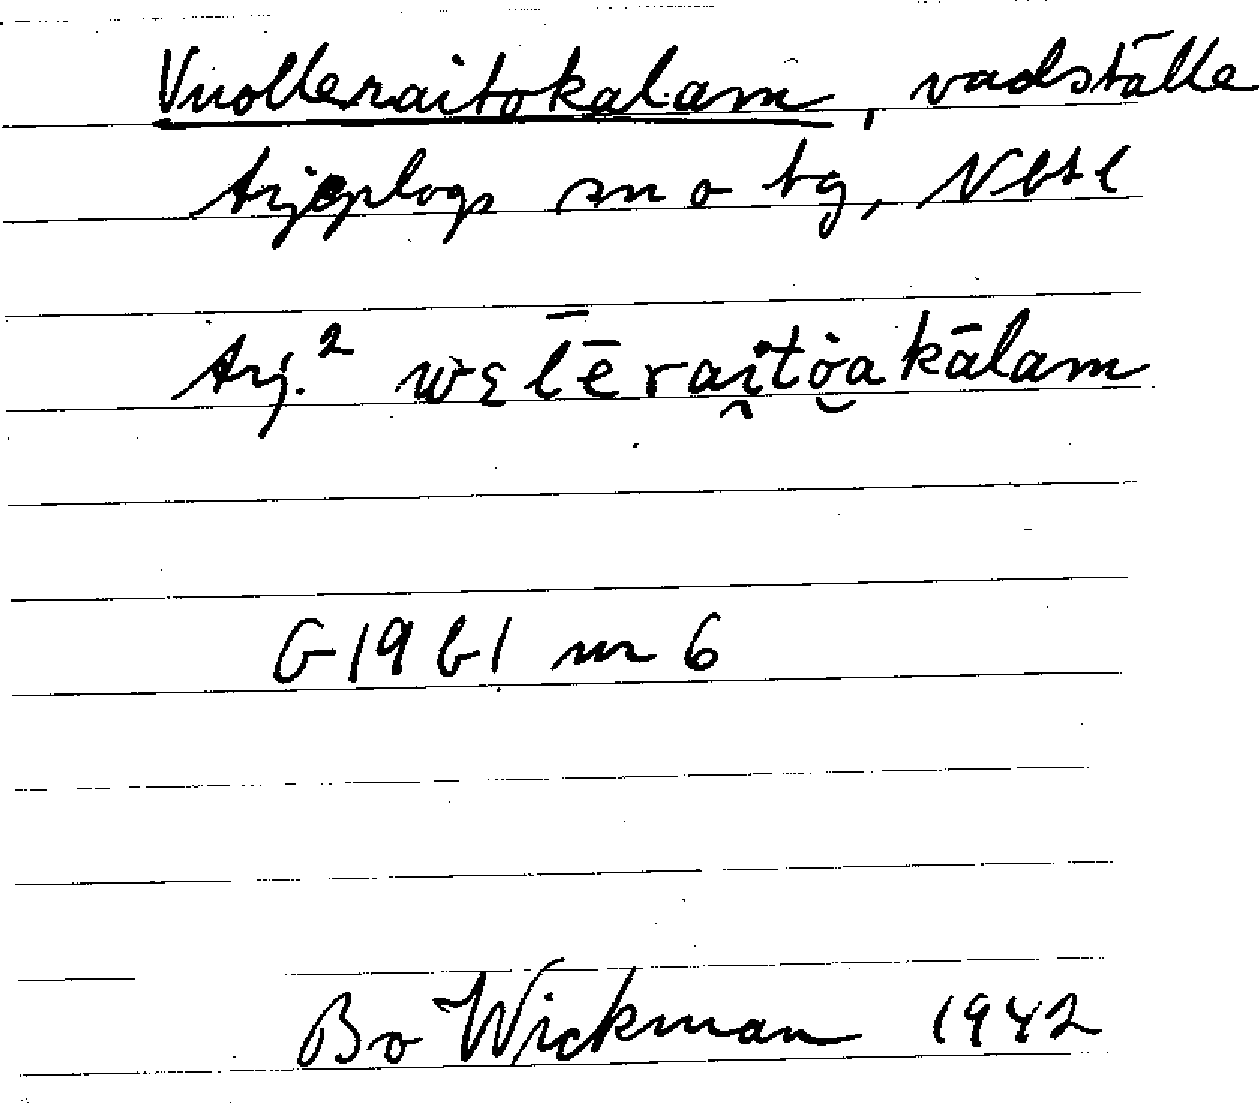 Vuolleraitokalam, vadställe
Arjeplogs sn o tg, Nbtl
Arj.² wɛl̄ērai̯tŏ̥akālam
G 19 b1 nr 6
Bo Wickman 1942